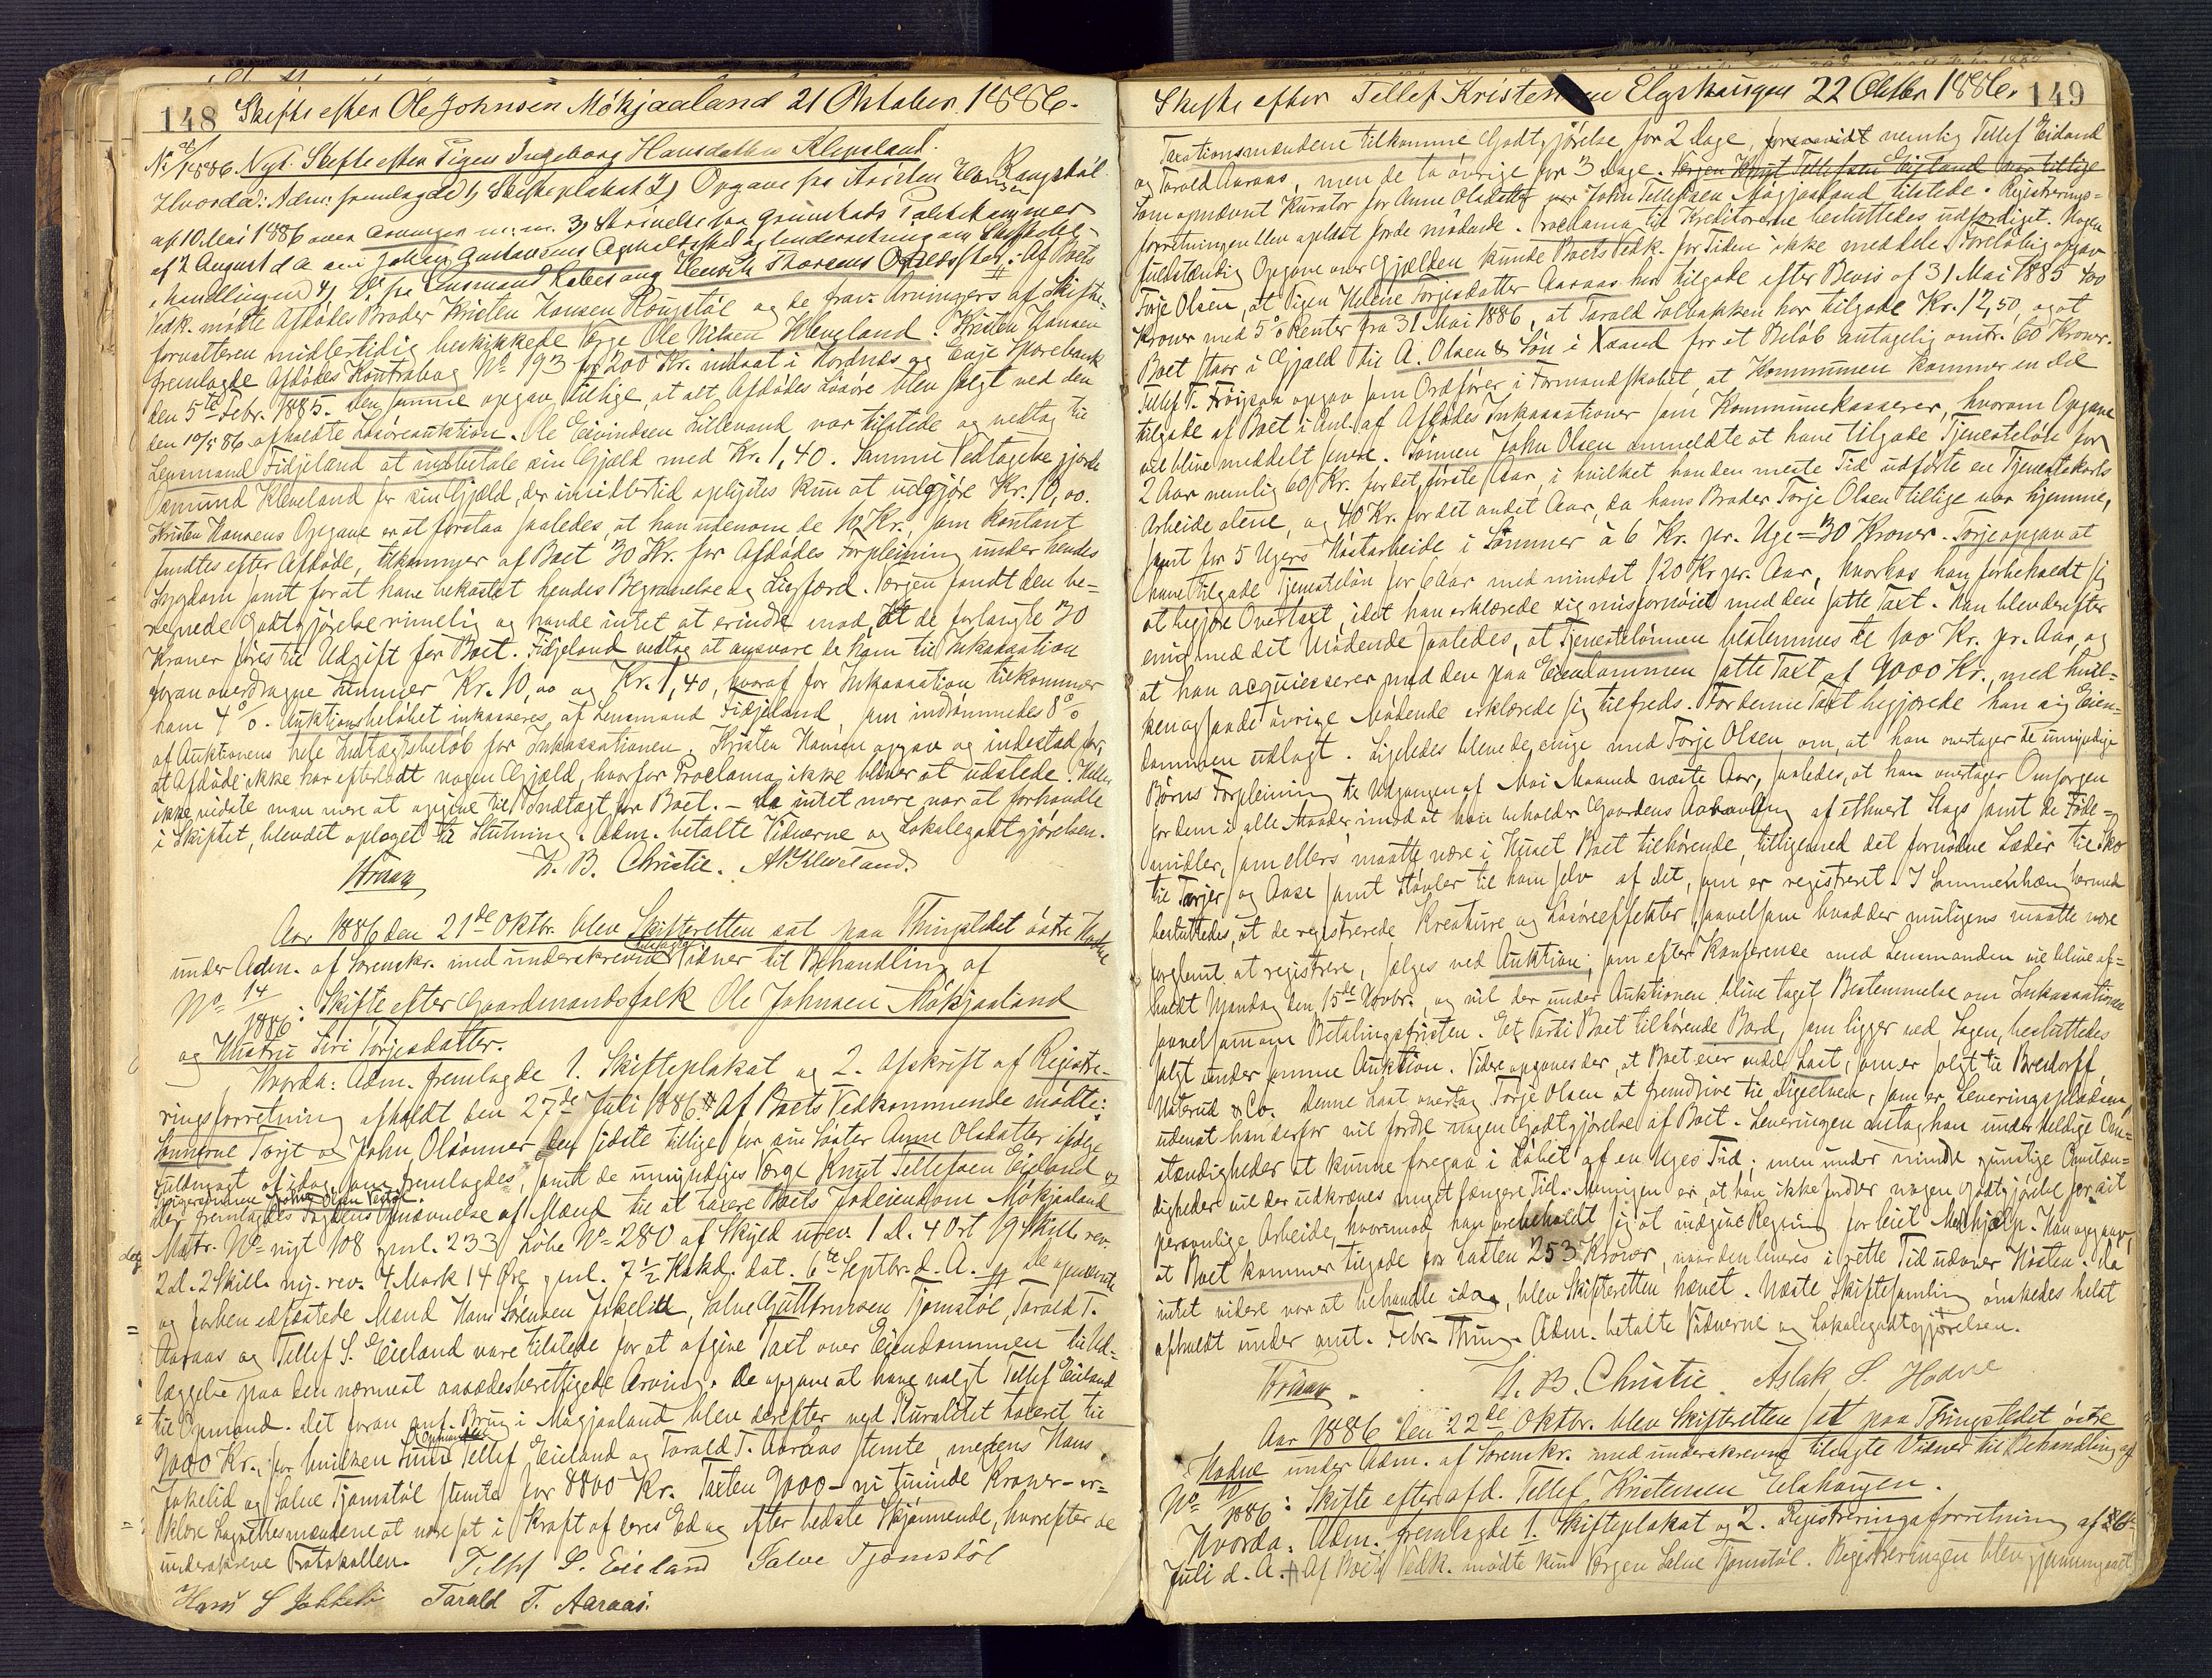 148 Skifte efter Ole Johnsen Mökjaaland 21 Oktober 1886.
No 1886. Nyt. Skifte efter Pigen Ingeborg Hansdatter Klepsland.
Hvorda: Adm. fremlagde 1, Skifteplakat 2, Opgave fra Kristen Hansen Raugstöl
af 10 Mai 1886 over Arvinger m.m. 3, Skrivelse fra Grimstads
af 2 August d A om Johan Gustavsens
handlingen 4, fra Lensmand Af Boets
Vedk. mödte Afdödes Broder Kristen Hansen og de frav. Arvingers af Skifte-
forvalteren midlertidig beskikkede Verge Ole Nilsen Kleveland. Kristen Hansen
fremlagde Afdödes Kontrabog No 193 for 200 Kr. indsat i Hordnæs og Evje Sparebank
den 5te Febr. 1885. Den samme opgav tillige, at alt Afdödes Lösöre blev solgt ved den
den 10/5 86 afholdte Lösöreauktion. Ole Eivindsen Lillevand var tilstede og vedtog til
Lensmand Fidjeland at indbetale sin Gjæld med Kr. 1,40. Samme Vedtagelse gjorde
Osmund Kleveland for sin Gjæld, der imidlertid oplystes kun at udgjöre Kr. 10,00.
Kristen Hansens Opgave er at forstaa saaledes, at han udenom de 102 Kr. som kontant
fandtes efter Afdöde, tilkommer af Boet 30 Kr. for Afdödes Forpleining under hendes
Sygdom samt for at have bekostet hendes Begravelse og Ligfærd. Vergen fandt den be-
regnede Godtgjörelse rimelig og havde intet at erindre mod, at de forlangte 30
Kroner föres til Udgift for Boet. Fidjeland vedtog at ansvare de ham til Inkassation
foran overdragne Summer Kr. 10,00 og Kr. 1,40, hvoraf for Inkassation tilkommer
ham 4 %. Auktionsbelöbet inkasseres af Lensmand Fidjeland, som indrömmedes 8 %
af Auktionens hele Indtægtsbelöb for Inkassationen. Kristen Hansen opgav og indestod for,
at Afdöde ikke har efterladt nogen Gjæld, hvorfor Proclama ikke bliver at udstede. Heller
ikke vidste man mere at opgive til Indtægt for Boet. – Da intet mere var at forhandle
i Skiftet, blev det optaget til Slutning. Adm. betalte Vidnerne og Lokalegodtgjörelsen.
H. B. Christie. A Kleveland.
Aar 1886 den 21de Oktbr. blev Skifteretten sat paa Thingstedet östre Hodne
under Adm. af Sorenskr. med underskrevne tilsagte Vidner til Behandling af
No 14/1886: Skifte efter Gaardmandsfolk Ole Johnsen Mökjaaland
og Hustru Siri Torjesdatter.
Hvorda: Adm. fremlagde 1. Skifteplakat og 2. Afskrift af Registre-
ringsforretning afholdt den 27de Juli 1886. Af Boets Vedkommende mödte:
Sönnerne Torje og John Olsönner, den sidste tillige for sin Söster Anne Olsdatter ifölge
Fuldmagt af idag som fremlagdes, samt de umyndiges Verge Knut Tellefsen Eieland og
Der fremlagdes Fogdens Opnævnelse af Mænd til at taxere Boets Jordeiendom Mökjaaland
Matr. No nyt 108 gml. 233 Löbe No 280 af Skyld urev. 1 d. 4 Ort 19 Skill. rev.
2 d. 2 Skill. ny. rev. 4 Mark 14 Öre gml. 7 1/2 dat. 6te Septbr. d. A. De opnævnte
og forhen edfæstede Mænd Hans Sörensen Jokelid, Salve Guttormsen Tjomstöl, Tarald T.
Aaraas og Tellef S. Eieland vare tilstede for at afgive Taxt over Eiendommen til Ud-
læggelse paa den nærmest aasædesberettigede Arving. De opgave at have valgt Tellef Eieland
til Opmand. Det foran anf. Brug i Mögjaaland blev derefter ved Pluralitet taxeret til
9000 Kr., for hvilken Sum Tellef Eieland og Tarald T. Aaraas stemte, medens Hans
Jokelid og Salve Tjomstöl stemte for 8800 Kr. Taxten 9000 – ni tusinde Kroner – er-
klære Lagrettesmændene at være sat i Kraft af deres Ed og efter bedste Skjönnende, hvorefter de
underskreve Protokollen. Tellef S. Eieland Salve Tjomstöl
Hans S Jokkeli Tarald T. Aaraas.
Skifte efter Tellef Kristensen Elgshaugen 22 Oktbr 1886. 149
Taxationsmændene tilkomme Godtgjörelse for 2 Dage, forsaavidt nemlig Tellef Eieland
og Tarald Aaraas, men de to övrige for 3 Dage. Vergen Knut Tellefsen Eieland var tillige
Som opnævnt Kurator for Anne Olsdatter var John Tellefsen Mögjaaland tilstede. Registrerings-
forretningen blev oplæst for de mödende. Proclama til Kreditorerne besluttedes udfærdiget. Nogen
fuldstændig Opgave over Gjælden kunde Boets Vedk. for Tiden ikke meddele. Foreløbig opgav
Torje Olsen, at Pigen Helene Torjesdatter Aaraas har tilgode efter Bevis af 31 Mai 1885 400
Kroner med 5 % Renter fra 31 Mai 1886, at Tarald Solbakken har tilgode Kr. 12,50, og at
Boet staar i Gjæld til A. Olsen & Sön i Xsand for et Belöb antagelig omtr. 60 Kroner.
Tellef T. Fröysaa opgav som Ordförer i Formandskabet, at Kommunen kommer en Del
tilgode af Boet i Anl. af Afdödes Inkassationer som Kommunekasserer, hvorom Opgave
vil blive meddelt senere. Sönnen John Olsen anmeldte at have tilgode Tjenestelön for
2 Aar nemlig 60 Kr. for det förste Aar, i hvilket han den meste Tid udförte en Tjenestekarls
Arbeide alene, og 40 Kr. for det andet Aar, da hans Broder Torje Olsen tillige var hjemme,
samt for 5 Ugers Höstarbeide i Sommer à 6 Kr. pr. Uge = 30 Kroner. Torje opgav at
have tilgode Tjenestelön for 6 Aar med mindst 120 Kr pr. Aar, hvorhos han forbeholdt sig
at begjöre Overtaxt, idet han erklærede sig misfornöiet med den satte Taxt. Han blev derefter
enig med det Mödende saaledes, at Tjenestelönnen bestemmes til 100 Kr. pr. Aar, og
at han acquiesserer med den paa Eiendommen satte Taxt af 9000 Kr., med hvil-
ken ogsaa de övrige Mödende erklærede sig tilfreds. For denne Taxt begjærede han sig Eien-
dommen udlagt. Ligeledes bleve de enige med Torje Olsen om, at han overtager de umyndige
Börns Forpleining til Udgangen af Mai Maaned næste Aar, saaledes, at han overtager Omsorgen
for dem i alle Maader imod at han beholder Gaardens Avling af ethvert Slags samt de Föde-
midler, som ellers maatte være i Huset Boet tilhörende, tilligemed det fornödne Læder til Sko
til Torjer og Aase samt Stövler til ham selv af det, som er registreret. I Sammenhæng hermed
besluttedes, at de registrerede Kreature og Lösöreeffekter, saavelsom hvad der muligens maatte være
forglemt at registrere, sælges ved Auktion, som efter Konference med Lensmanden vil blive af-
holdt Mandag den 15de Novbr., og vil der under Auktionen blive taget Bestemmelse om Inkassationen
saavelsom om Betalingsfristen. Et Parti Boet tilhörende Bord, som ligger ved Sagen, besluttedes
solgt under samme Auktion. Videre opgaves der, at Boet eier endel Last, som er solgt til Bredorff,
Usterud & Co. Denne Last overtog Torje Olsen at fremdrive til Digeelven, som er Leveringspladsen,
udenat han derfor vil fordre nogen Godtgjörelse af Boet. Leveringen antog han under heldige Om-
stændigheder at kunne foregaa i Löbet af en Uges Tid; men under mindre gunstige Omstæn-
digheder vil der udkræves noget længere Tid. Meningen er, at han ikke fordrer nogen Godtgjörelse for sit
personlige Arbeide, hvorimod han forbeholdt sig at indgive Regning for leiet Medhjælp. Han opgav,
at Boet kommer tilgode for Lasten 253 Kroner, naar den leveres i rette Tid udover Hösten. Da
intet videre var at behandle idag, blev Skifteretten hævet. Næste Skiftesamling önskedes helst
afholdt under anst. Febr. Thing. Adm. betalte Vidnerne og Lokalegodtgjörelsen.
H. B. Christie. Aslak S. Hodne
Aar 1886 den 22de Oktbr. blev Skifteretten sat paa Thingstedet östre
Hodne under Adm. af Sorenskr. med underskrevne tilsagte Vidner til Behandling af
No 10/1886: Skifte efter afd. Tellef Kristensen Elshaugen.
Hvorda: Adm. fremlagde 1. Skifteplakat og 2. Registreringsforretning af 26de
Juli d. A. Af Boets Vedk. mödte kun Vergen Salve Tjomstöl. Registreringen blev gjennemgaaet